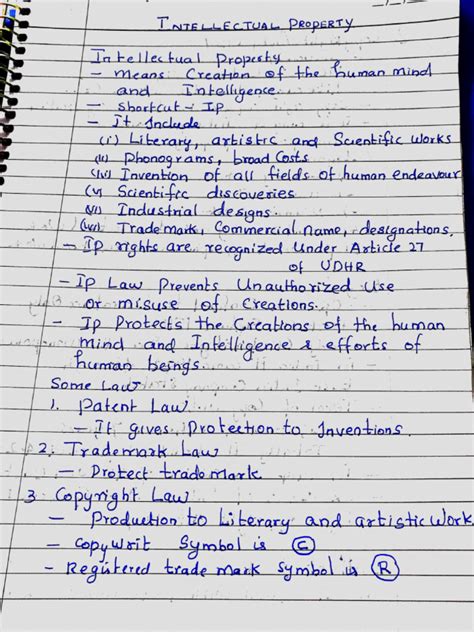 INTELLECTUAL PROPERTY
Intellectual Property
- means Creation of the human mind
and Intelligence.
- shortcut - IP
- It Include
(i) Literary, artistic and Scientific Works
(ii) Phonograms, broad Costs
(iv) Invention of all fields of human endeavour
(v) Scientific discoveries
(vi) Industrial designs.
(vii) Trademark, Commercial name, designations.
- Ip rights are recognized Under Article 27
of UDHR
- Ip Law Prevents Unauthorized Use
or misuse of Creations.
- Ip Protects the Creations of the human
mind and Intelligence & efforts of
human beings.
Some Law
1. Patent Law
- It gives Protection to Inventions.
2. Trademark Law
- Protect trademark
3. Copyright Law
- Production to Literary and artistic Work.
- Copywrit Symbol is ©
- Registered trade mark Symbol is ®